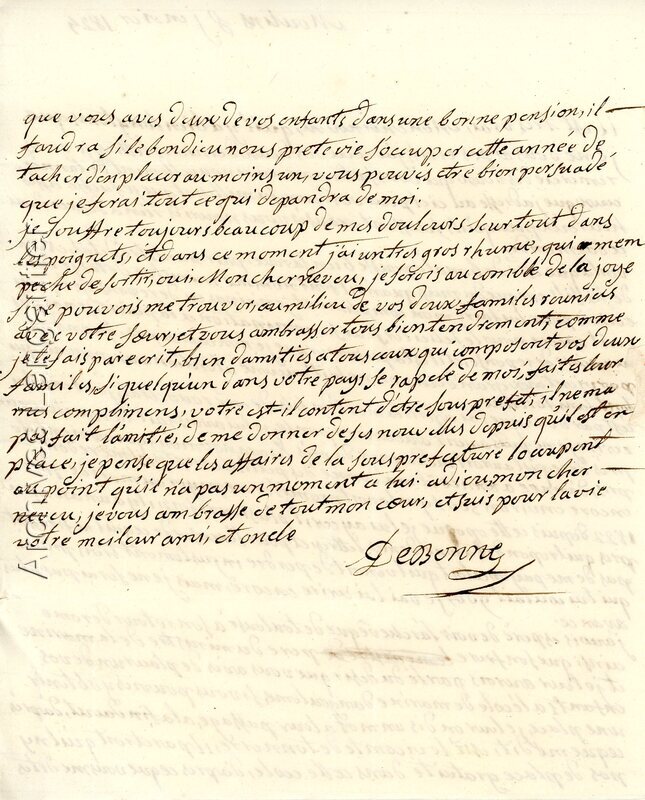 que vous avés deux de vos enfants dans une bonne pension, il
faudra si le bon dieu nous prete vie s'occuper cette année de
tacher d'en placer au moins un, vous pouvés etre bien persuadé
que je ferai tout ce qui dépandra de moi.
je souffre toujours beaucoup de mes douleurs seur tout dans
les poignets, et dans ce moment j'ai un tres gros rhume, qui m'em
peche de sortir, oui, Mon cher neveu, je serois au comble de la joye
si je pouvois me trouver, au milieu de vos deux familes reunies
avec votre sœur, et vous ambrasser tous bien tendrement, comme
je le fais par ecrit, bien d'amities a tous ceux qui composent vos deux
familes, si quelqu'un dans votre pays se rapele de moi, faites leur
mes complimens, votre est-il content d'être sous prefet, il ne m'a
pas fait l'amitié, de me donner de ses nouvelles depuis qu'il est en
place, je pense que les affaires de la sous prefecture l'occupent
au point qu'il n'a pas un moment a lui. adieu mon cher
neveu, je vous ambrasse de tout mon cœur, et suis pour la vie
votre meileur ami, et oncle
DeBonne